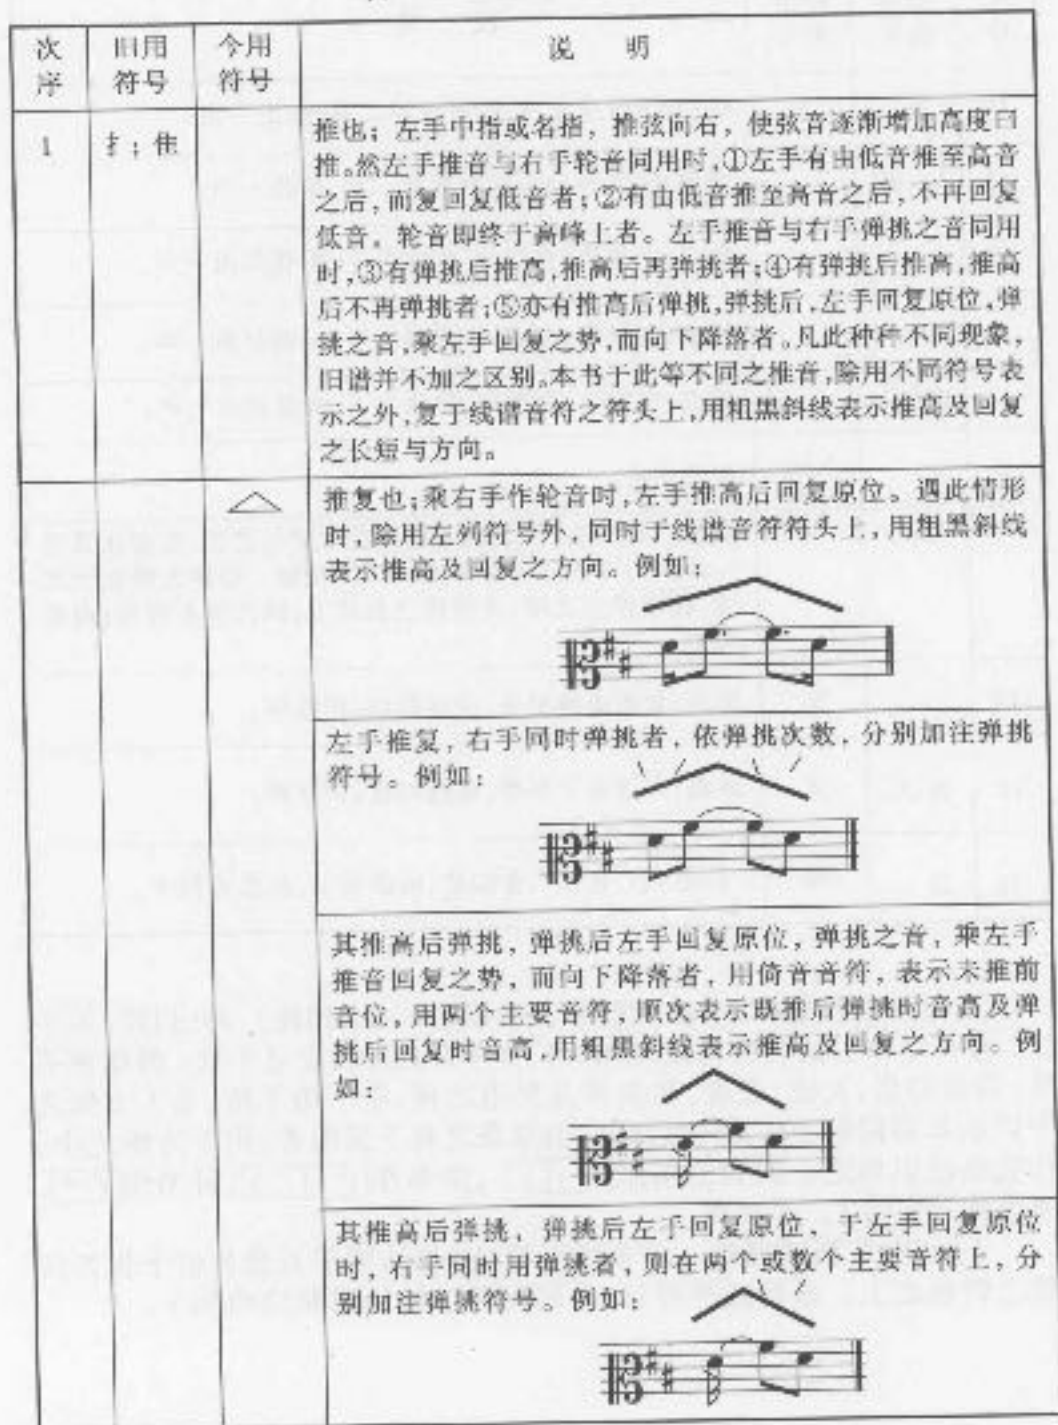 次序 旧用符号 今用符号 说 明
1 扌；隹
推也；左手中指或名指，推弦向右，使弦音逐渐增加高度曰
推。然左手推音与右手轮音同用时，①左手有由低音推至高音
之后，而复回复低音者；②有由低音推至高音之后，不再回复
低音。轮音即终于高峰上者。左手推音与右手弹挑之音同用
时，③有弹挑后推高，推高后再弹挑者；④有弹挑后推高，推高
后不再弹挑者；⑤亦有推高后弹挑，弹挑后，左手回复原位，弹
挑之音，乘左手回复之势，而向下降落者。凡此种种不同现象，
旧谱并不加之区别。本书于此等不同之推音，除用不同符号表
示之外，复于线谱音符之符头上，用粗黑斜线表示推高及回复
之长短与方向。
推复也；乘右手作轮音时，左手推高后回复原位。遇此情形
时，除用左列符号外，同时于线谱音符符头上，用粗黑斜线
表示推高及回复之方向。例如：
左手推复，右手同时弹挑者，依弹挑次数，分别加注弹挑
符号。例如：
其推高后弹挑，弹挑后左手回复原位，弹挑之音，乘左手
推音回复之势，而向下降落者，用倚音音符，表示未推前
音位，用两个主要音符，顺次表示既推后弹挑时音高及弹
挑后回复时音高，用粗黑斜线表示推高及回复之方向。例
如：
其推高后弹挑，弹挑后左手回复原位，于左手回复原位
时，右手同时用弹挑者，则在两个或数个主要音符上，分
别加注弹挑符号。例如：